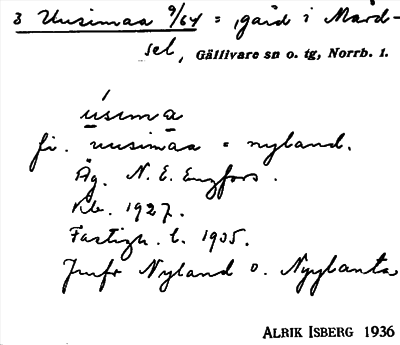 3 Uusimaa 9/64 = gård i Mård-
sel, Gällivare sn o. tg, Norrb. l.
úsima
fi. uusimaa = nyland.
Äg. N. E. Engfors.
Kb. 1927.
Fastigh. l. 1935.
Jmfr Nyland o. Nyylanta
ALRIK ISBERG 1936